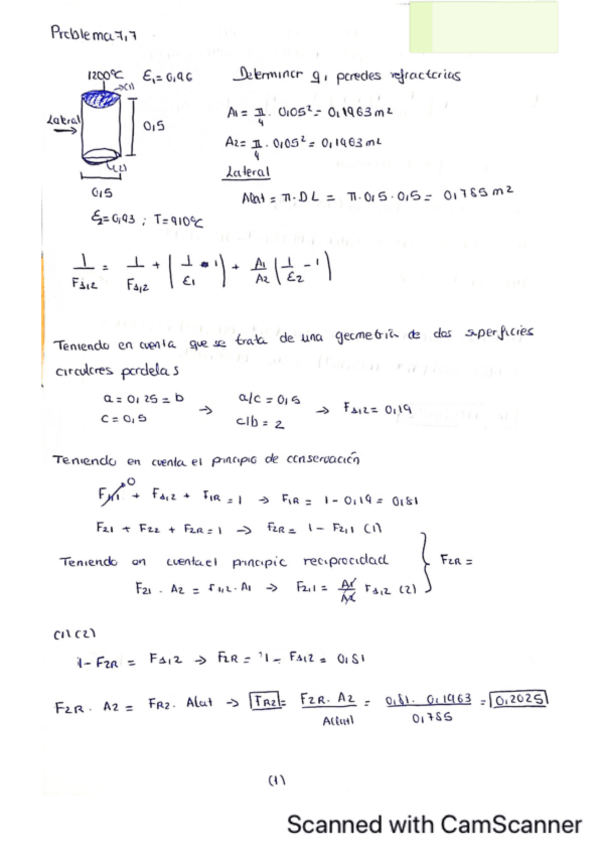 Problema 7,7
1200ºC ε1 = 0,96 Determinar q, paredes refractarias
(1)
Lateral
0,5
A1 = π/4 · 0,05² = 0,1963 m2
A2 = π/4 · 0,05² = 0,1963 m2
(2)
Lateral
0,5
Alat = π · D L = π · 0,5 · 0,5 = 0,785 m2
ε2 = 0,93 ; T = 910ºC
1/F1,2 = 1/F1,2 + (1/ε1 - 1) + A1/A2 (1/ε2 - 1)
Teniendo en cuenta que se trata de una geometría de dos superficies
circulares pardelas
a = 0,25 = b → a/c = 0,5 → F1,2 = 0,19
c = 0,5 c/b = 2
Teniendo en cuenta el principio de conservación
F1,1 0 + F1,2 + F1R = 1 → F1R = 1 - 0,19 = 0,81
F21 + F22 + F2R = 1 → F2R = 1 - F2,1 (1)
Teniendo en cuenta el principio reciprocidad F2R =
F21 · A2 = F1,2 · A1 → F2,1 = A1/A2 F1,2 (2)
(1) (2)
1 - F2R = F1,2 → F2R = 1 - F1,2 = 0,81
F2R · A2 = FR2 · Alat → FR2 = F2R · A2 / A(lat) = 0,81 · 0,1963 / 0,785 = 0,2025
(1)
Scanned with CamScanner